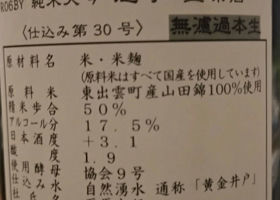 R06BY 純米大
〈仕込み第30号〉
無濾過本生
原材料名 米・米麹
(原料米はすべて国産を使用しています)
原料米 東出雲町産山田錦100%使用
精米歩合 50%
アルコール分 17.5%
日本酒度 +3.1
酸度 1.9
使用酵母 協会9号
仕込み水 自然湧水 通称「黄金井戸」